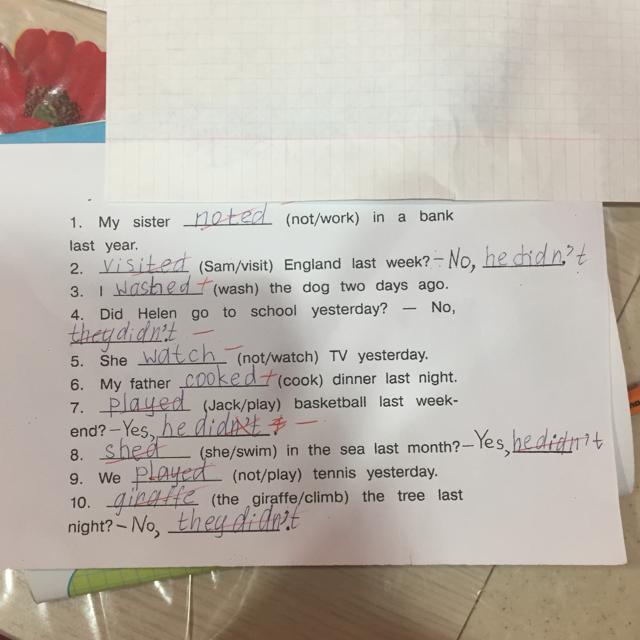 1. My sister noted (not/work) in a bank
last year.
2. visited (Sam/visit) England last week? - No, he didn't
3. I washed + (wash) the dog two days ago.
4. Did Helen go to school yesterday? — No,
they didn't —
5. She watch — (not/watch) TV yesterday.
6. My father cooked + (cook) dinner last night.
7. played (Jack/play) basketball last week-
end? - Yes, he didn't. —
8. shed (she/swim) in the sea last month? - Yes, he didn't
9. We played (not/play) tennis yesterday.
10. giraffe (the giraffe/climb) the tree last
night? - No, they didn't